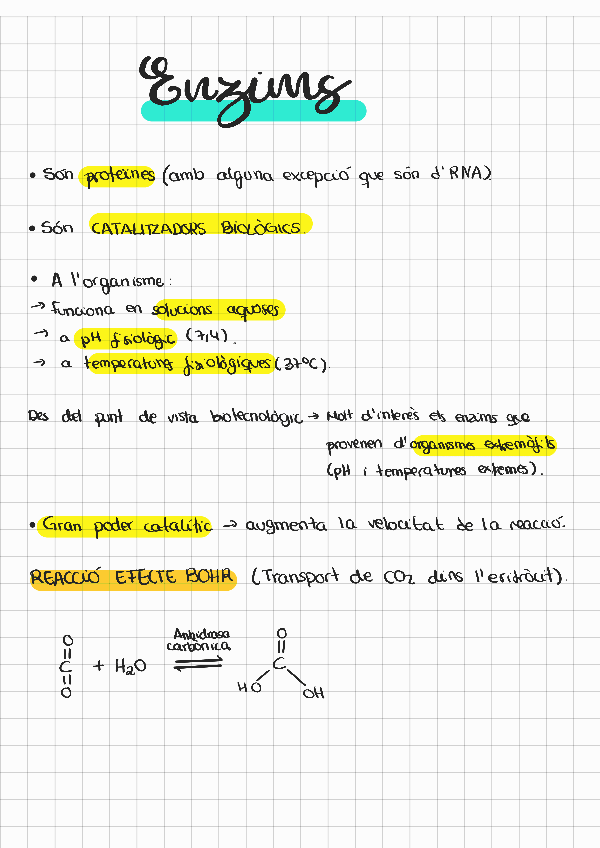 Enzims
• Són proteïnes (amb alguna excepció que són d'RNA)
• Són CATALITZADORS BIOLÒGICS.
• A l'organisme:
→ funciona en solucions aquoses
→ a pH fisiològic (7,4).
→ a temperatures fisiològiques (37ºC).
Des del punt de vista biotecnològic → Molt d'interès els enzims que
provenen d'organismes extremòfils
(pH i temperatures extremes).
• Gran poder catalític → augmenta la velocitat de la reacció.
REACCIÓ EFECTE BOHR (Transport de CO2 dins l'eritròcit).
Anhidrasa
carbònica
O
||
C
||
O
+ H2O ⇌
O
||
C
HO OH